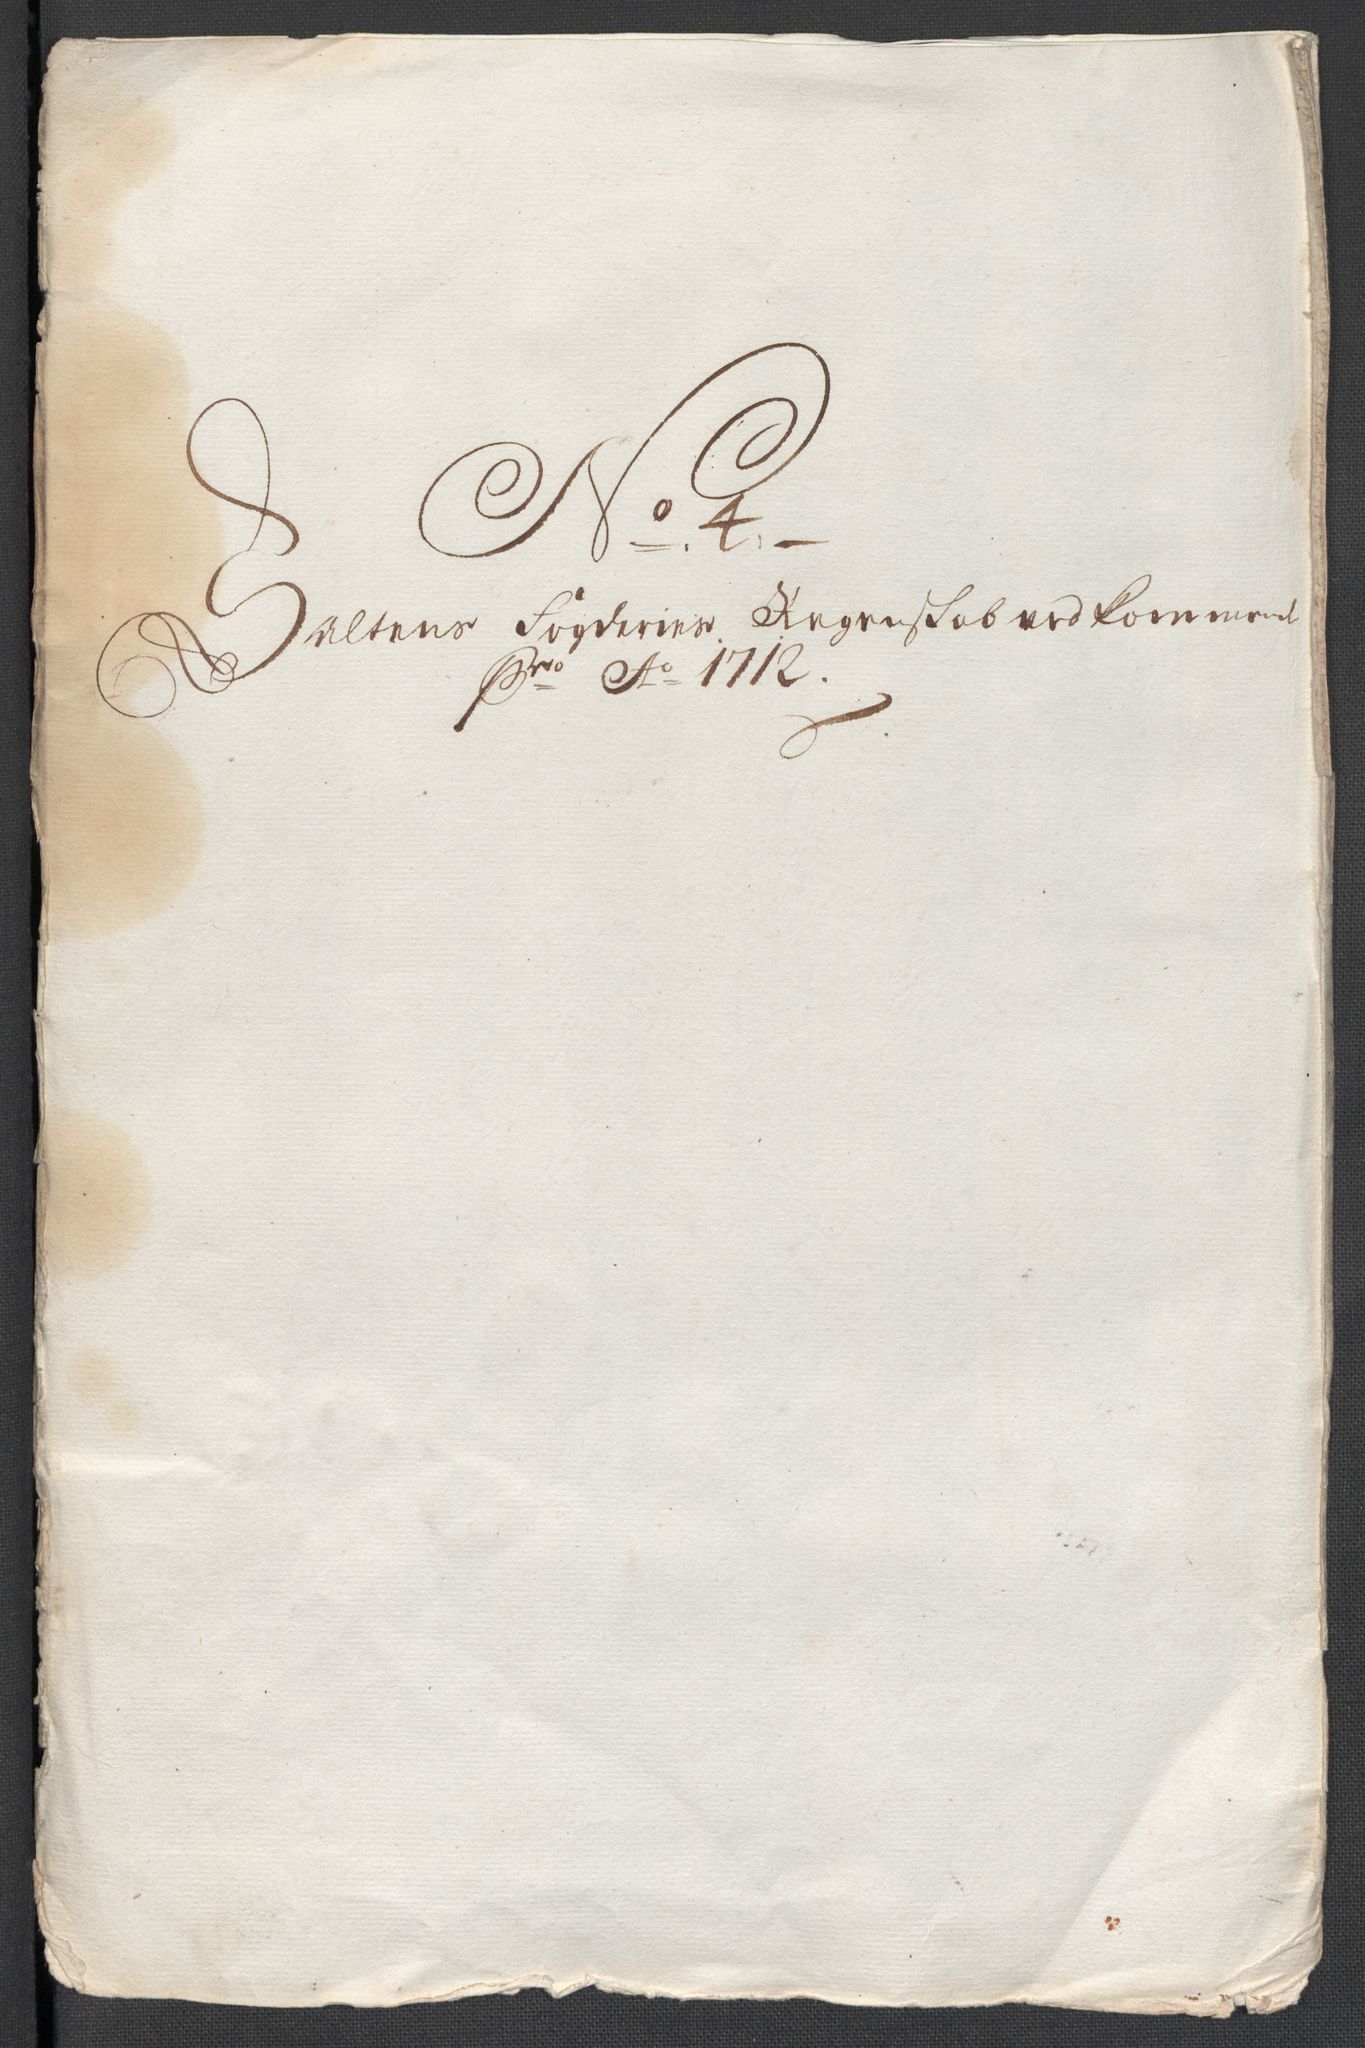 No. 4.
Saltens Fogderies Regenskab vedkommend
Pro Ao 1712.